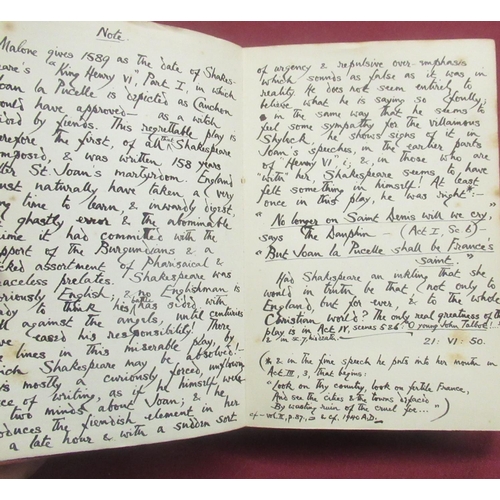 Note.
Malone gives 1589 as the date of Shakes-
peare's "King Henry VI", Part I, in which
Joan la Pucelle is depicted as Cauchon
would have approved — as a witch
aided by fiends. This regrettable play is
therefore the first, of all Shakespeare
composed, & was written 158 years
after St. Joan's martyrdom. England
must naturally have taken a very
long time to learn, & inwardly digest,
ghastly error & the abominable
crime it had committed with the
support of the Burgundians & a
assortment of Pharisaical &
graceless prelates. Shakespeare was
curiously English, & no Englishman is
ready to think his battle sided with
against the angels, until centuries
eased his responsibility! There
are lines in this miserable play, by
which Shakespeare may be absolved!
mostly a curiously forced,
piece of writing, as if he himself were
two minds about Joan; & he
the fiendish element in her
a late hour & with a sudden sort
of urgency & repulsive over-emphasis
which sounds as false as it was in
reality. He does not seem entirely to
believe what he is saying so loudly,
in the same way that he seems to
feel some sympathy for the villainous
Shylock, he shows signs of it in
Joan's speeches, in the earlier parts
of "Henry VI" i, & in those who are
"with" her, Shakespeare seems, to have
felt something in himself! At least
once in this play, he was right:—
"No longer on Saint Denis will we cry,"
says the Dauphin — (Act I, Sc 6) —
"But Joan la Pucelle shall be France's
Saint."
Had Shakespeare an inkling that she
would in truth be that (not only to
England, but for ever & to the whole
Christian world? The only real greatness of the
play is in Act IV, scenes 5 & 6! O young John Talbot!
21: VI: 50.
(& 2 in the fine speech he puts into her mouth in
Act III, 3, that begins:
"Look on thy country, look on fertile France,
And see the cities & the towns defac'd
By wasting ruin of the cruel foe...")
cf — Vol. II, p. 87, & cf. 1940 A.D.